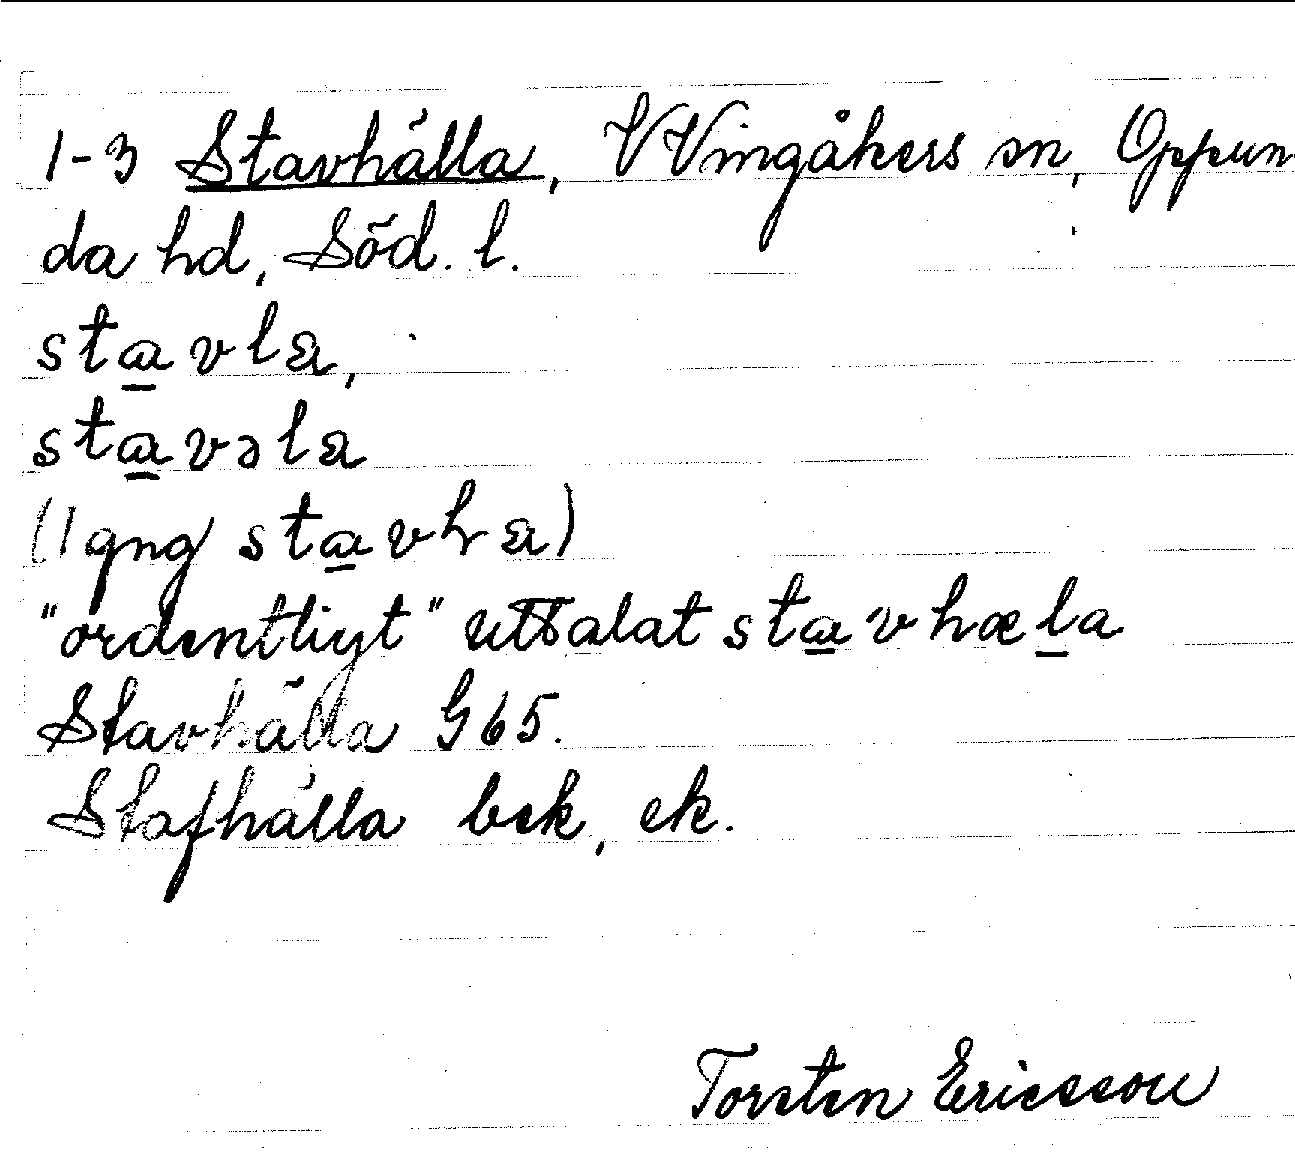 1-3 Stavhälla, V Vingåkers sn, Oppun
da hd, Söd. l.
stɑ̲vla,
stɑ̲vəla
(1 gng stɑ̲vha)
"ordentligt" uttalat stɑ̲vhæl̲a
Stavhälla G 65.
Stafhälla bek, ek.
Torsten Ericsson